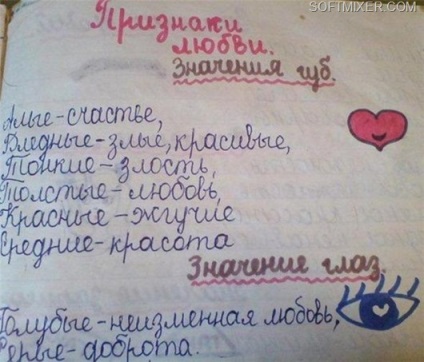 SOFTMIXER.COM
Признаки
любви.
Значения губ.
Алые-счастье,
Бледные-злые, красивые,
Тонкие-злость,
Толстые-любовь,
Красные-жгучие
Средние-красота
Значение глаз.
Голубые-неизменная любовь,
Серые-доброта.